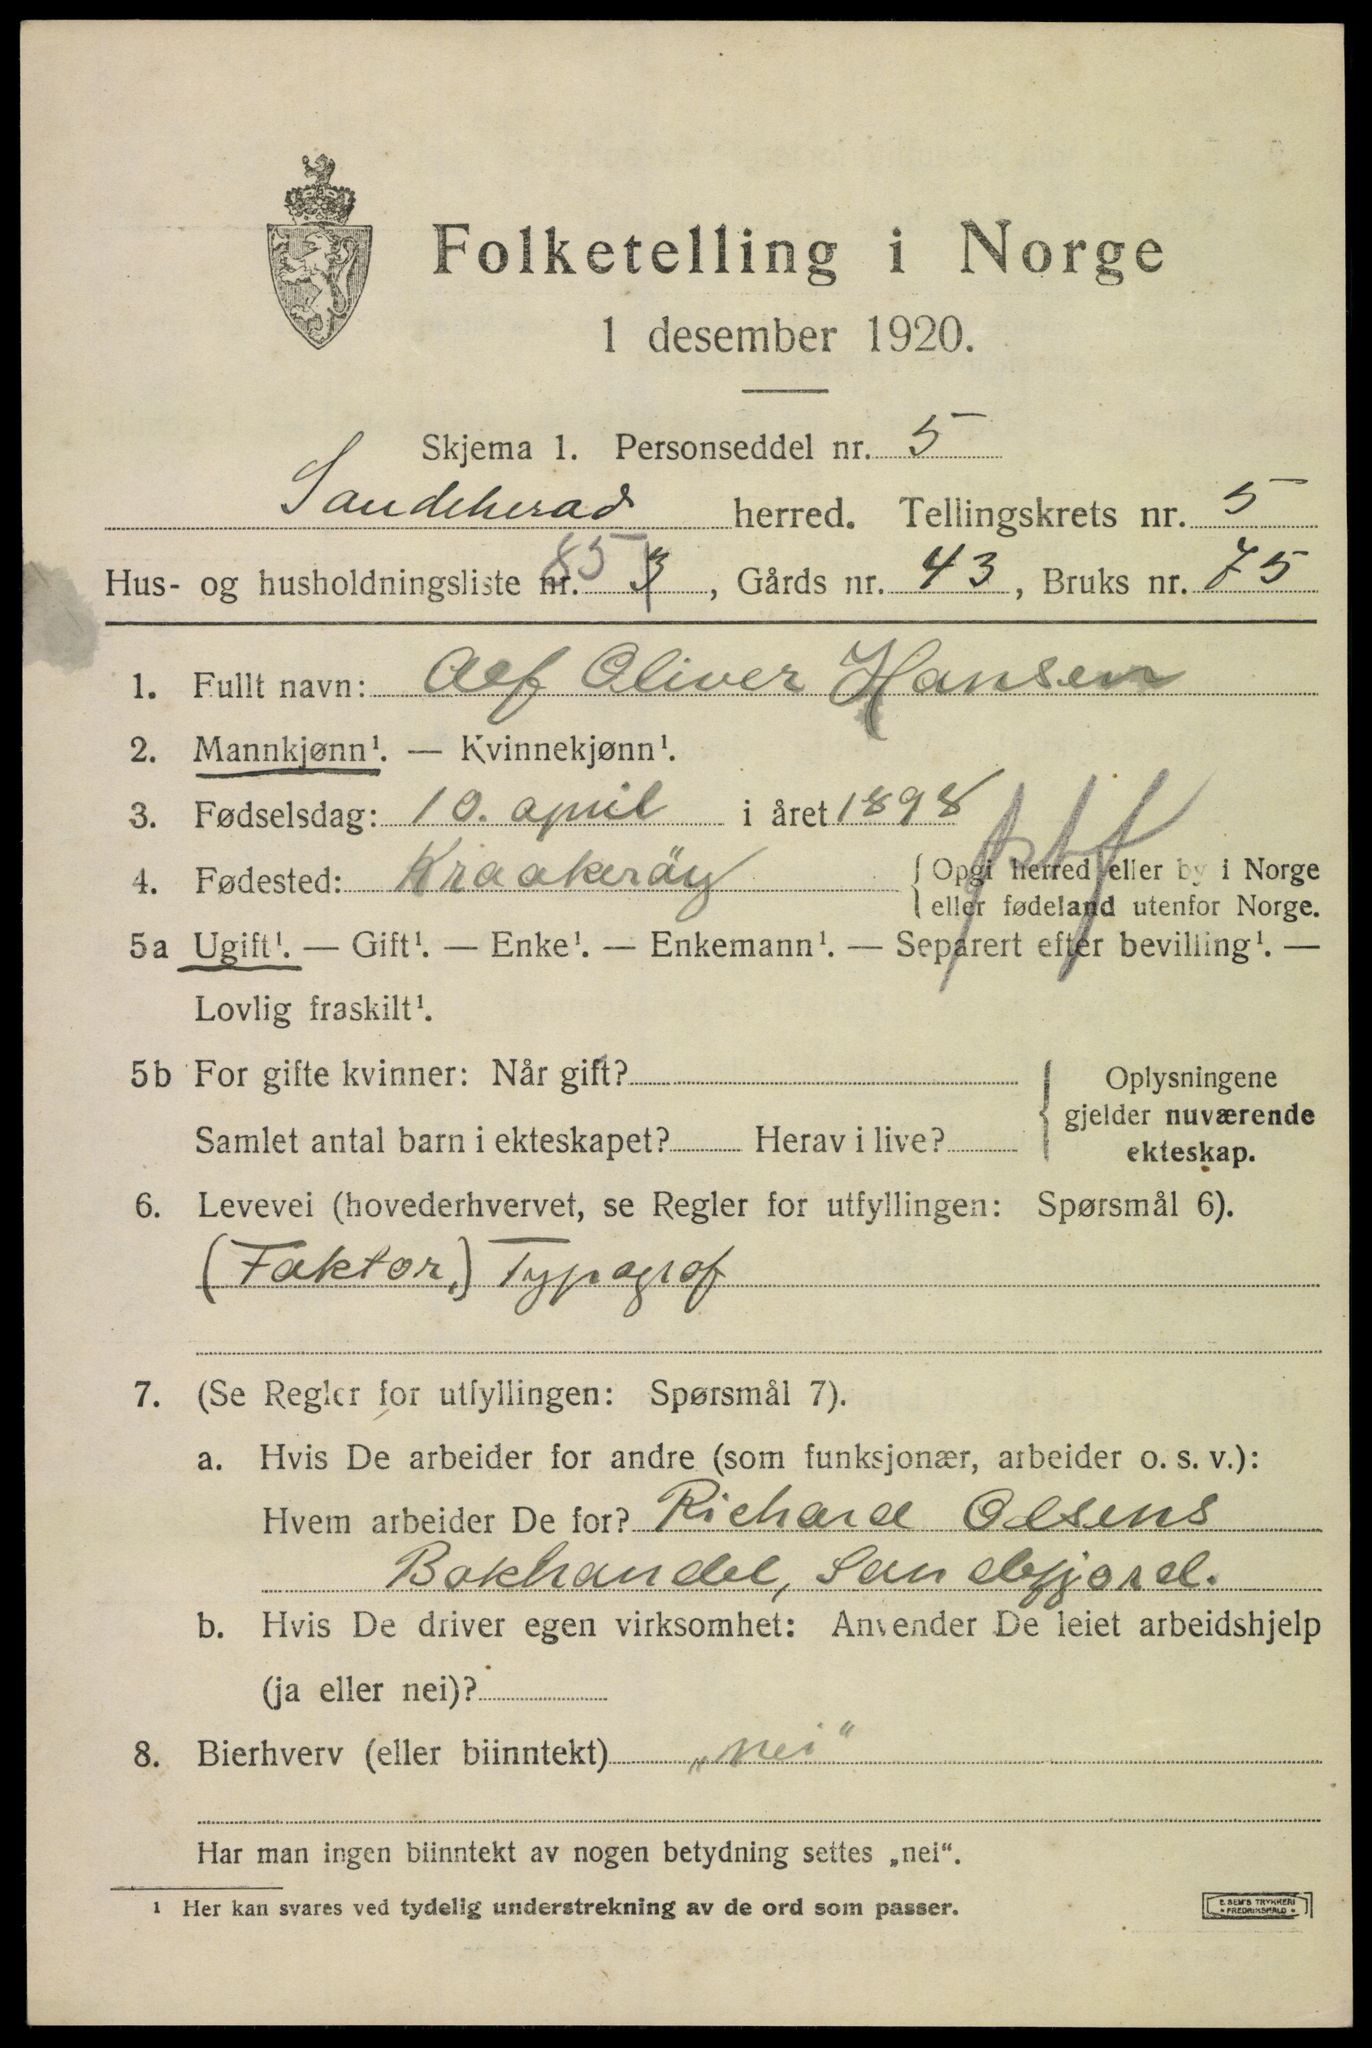 Folketelling i Norge
1 desember 1920.
Skjema 1. Personseddel nr. 5
Sandeherad herred. Tellingskrets nr. 5
Hus- og husholdningsliste nr. 85 3, Gårds nr. 43, Bruks nr. 75
1. Fullt navn: Alf Oliver Hansen
2. Mannkjønn¹. — Kvinnekjønn¹.
3. Fødselsdag: 10. april i året 1898
4. Fødested: Kraakeröy { Opgi herred eller by i Norge
eller fødeland utenfor Norge.
5a Ugift¹. — Gift¹. — Enke¹. — Enkemann¹. — Separert efter bevilling¹. —
Lovlig fraskilt¹.
5b For gifte kvinner: Når gift?
Samlet antal barn i ekteskapet? Herav i live?
Oplysningene
gjelder nuværende
ekteskap.
6. Levevei (hovederhvervet, se Regler for utfyllingen: Spørsmål 6).
(Faktor,) Typograf
7. (Se Regler for utfyllingen: Spørsmål 7).
a. Hvis De arbeider for andre (som funksjonær, arbeider o. s. v.):
Hvem arbeider De for? Richard Olsens
Bokhandel, Sandefjord.
b. Hvis De driver egen virksomhet: Anvender De leiet arbeidshjelp
(ja eller nei)?
8. Bierhverv (eller biinntekt) „nei“
Har man ingen biinntekt av nogen betydning settes „nei“.
¹ Her kan svares ved tydelig understrekning av de ord som passer.
E. SEM'S TRYKKERI
FREDRIKSHALD